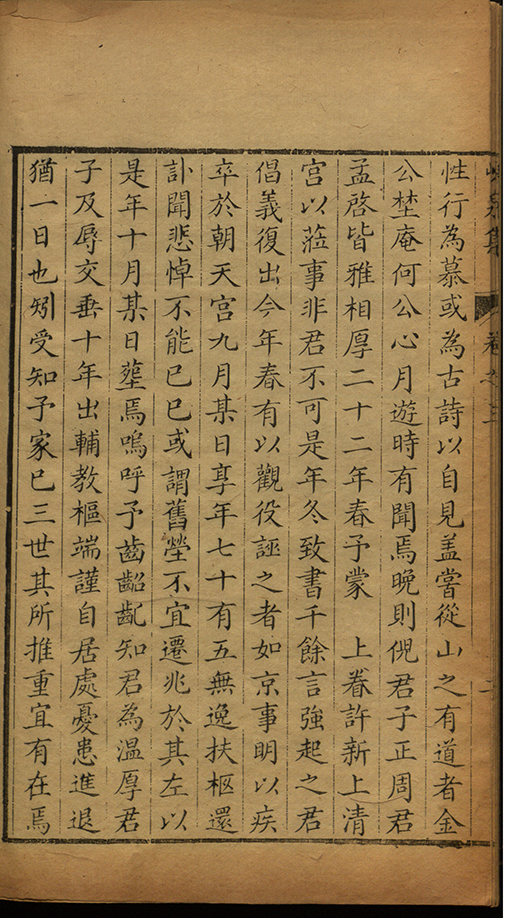 峴泉集 卷之三
性行為慕或為古詩以自見盖嘗從山之有道者金
公埜庵何公心月遊時有聞焉晚則倪君子正周君
孟啓皆雅相厚二十二年春予蒙　上眷許新上清
宮以蒞事非君不可是年冬致書千餘言強起之君
倡義復出今年春有以觀役誣之者如京事明以疾
卒於朝天宮九月某日享年七十有五無逸扶柩還
訃聞悲悼不能已已或謂舊塋不宜遷兆於其左以
是年十月某日塟焉嗚呼予齒齠齔知君為溫厚君
子及辱交垂十年出輔教樞端謹自居處憂患進退
猶一日也矧受知予家已三世其所推重宜有在焉